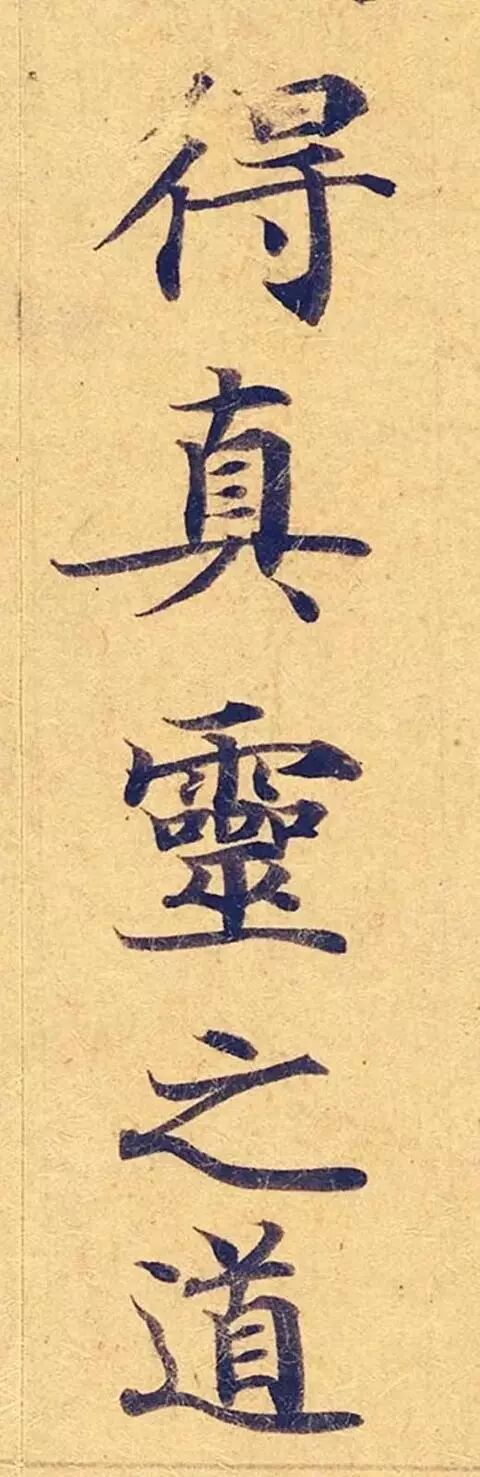 得真靈之道